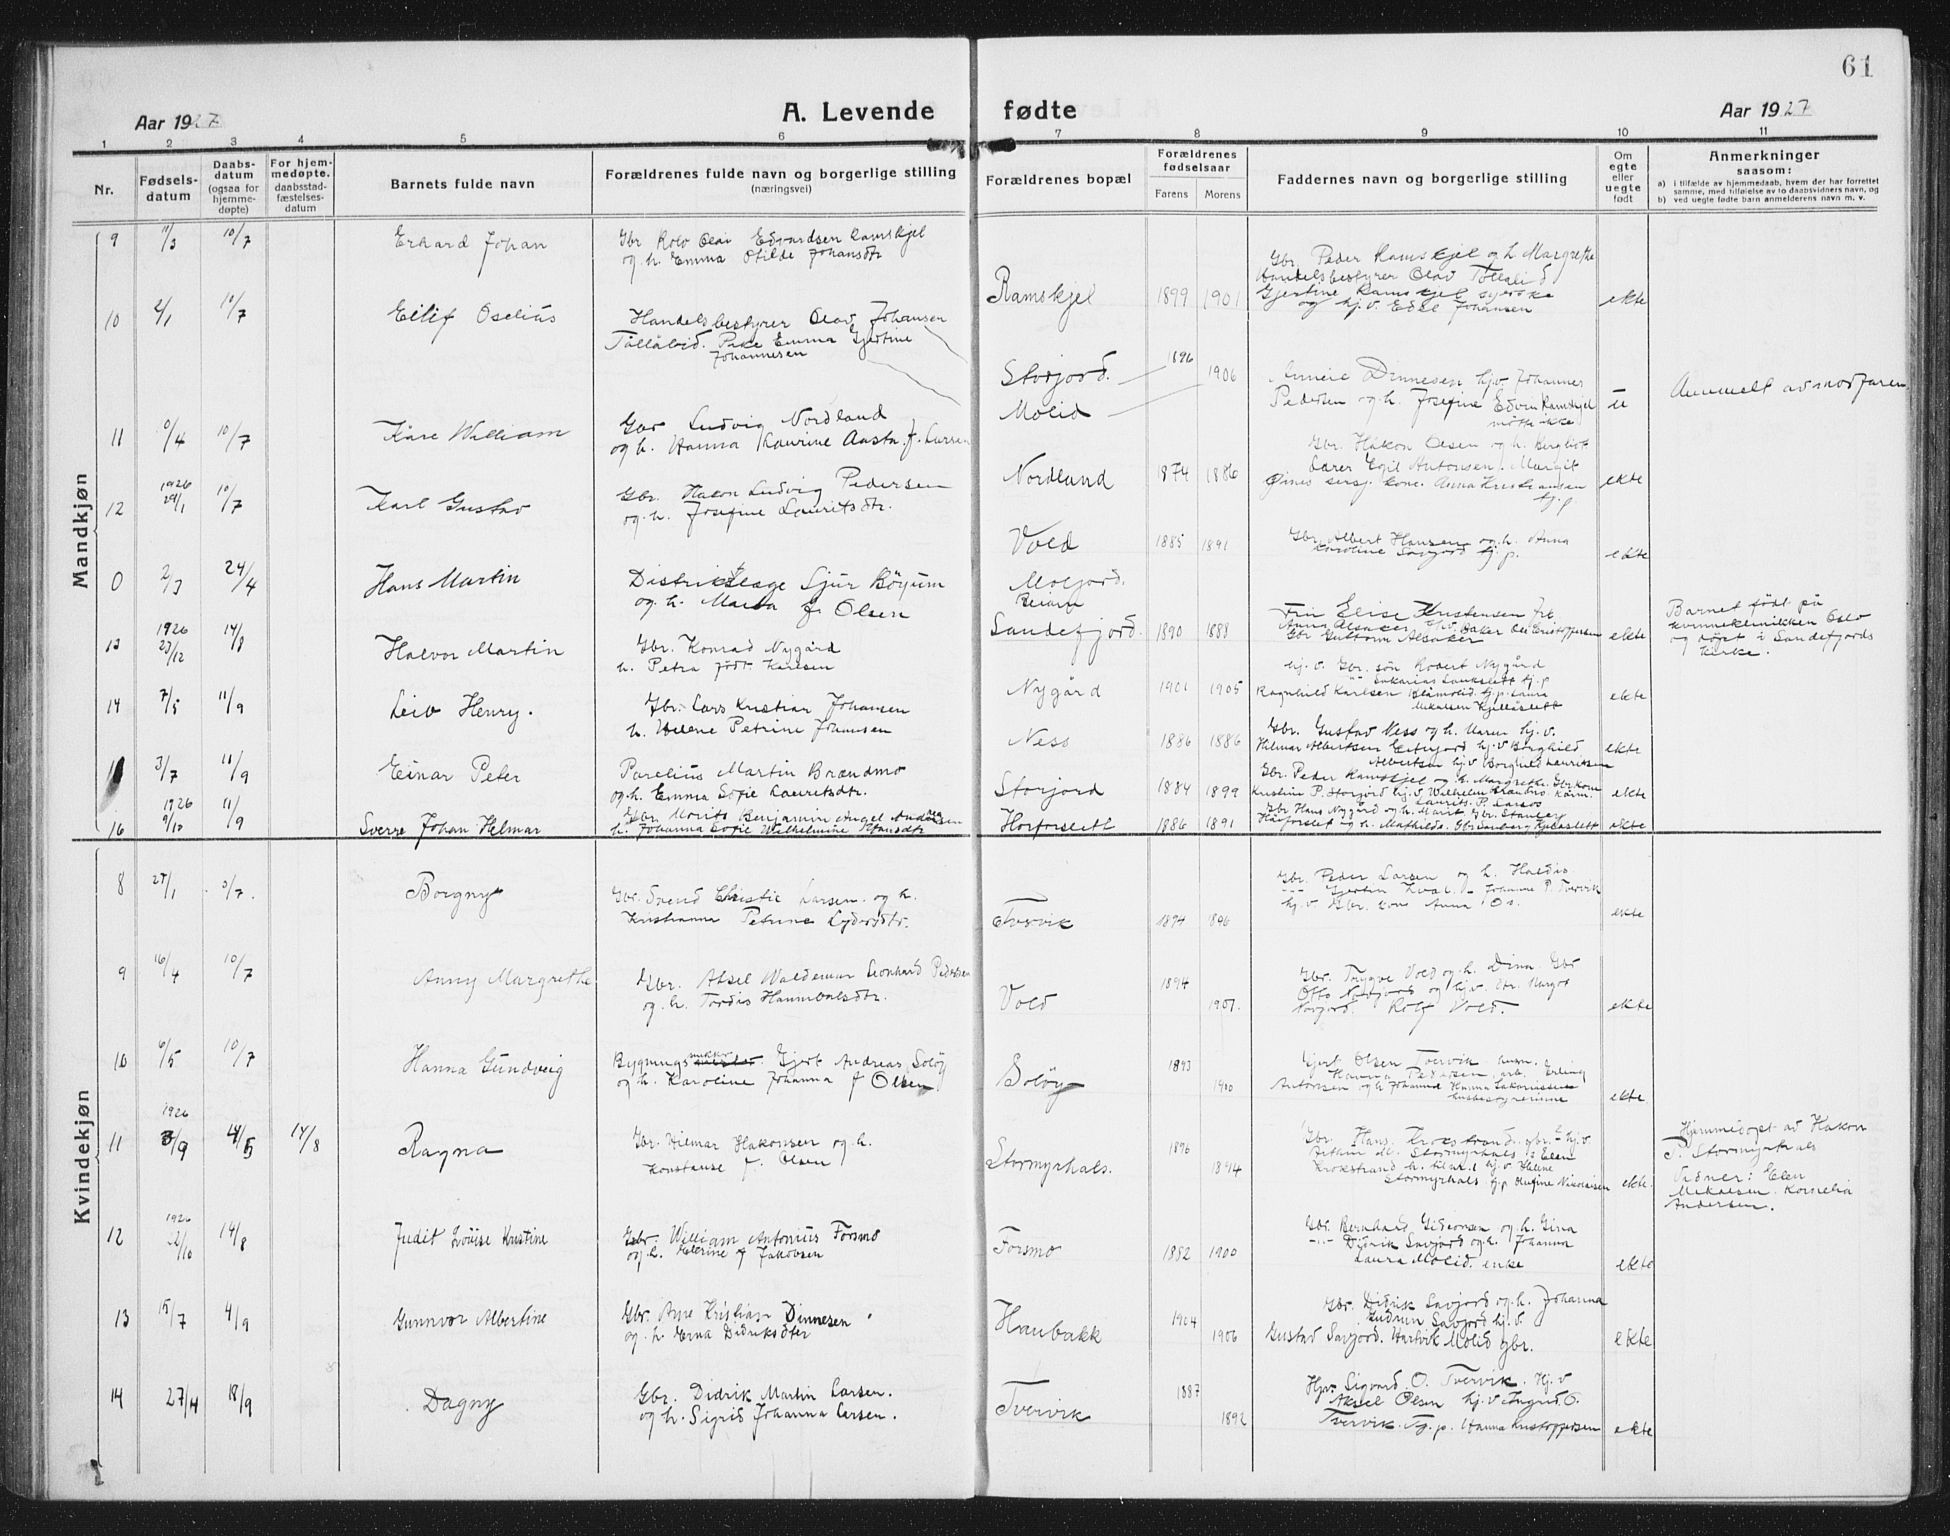 61
Aar 1927
A. Levende fødte
Aar 1927
1 2 3 4 5 6 7 8 9 10 11
Nr.
Fødsels-
datum
Daabs-
datum
(ogsaa for
hjemme-
døpte)
For hjem-
medøpte.
daabsstad-
fæstelses-
datum
Barnets fulde navn
Forældrenes fulde navn og borgerlige stilling
(næringsvei)
Forældrenes bopæl
Forældrenes
fødselsaar
Farens Morens
Faddernes navn og borgerlige stilling
Om
egte
eller
uegte
født
Anmerkninger
saasom:
a) i tilfælde av hjemmedaab, hvem der har forrettet
samme, med tilføielse av to daabsvidners navn, og
b) ved uegte fødte barn anmelderens navn m. v.
Mandkjøn
9 11/3 10/7 Erhard Johan
Gbr Rolv Olai Edvardsen Ramskjel
og h. Emma Otilde Johansdtr
Ramskjel 1899 1901
Gbr. Peder Ramskjel og h Margrethe
Handelsbestyrer Olav Tollåli
Gjertine Ramskjel syerske
og hj.v. Johansen
ekte
10 2/1 10/7 Eilif Oselius
Handelsbestyrer Olav Johansen
Tollålid. Pike Emma Gjertine
Johannesen
Storjord. 1896
Molid 1906
Dinnesen hjv Johannes
Pedersen og h. Josefine Edvin Ramskjel
møtte ikke
u
Anmelt av morfaren
11 /4 10/7 Kåre William
Gbr Ludvig Nordland
og h. Hanna Laurine Aasta f. Larsen
Nordland 1874 1886
Gbr. Håkon Olsen og h. Bergliot
Lærer Egil Antonsen. Margit
Anna Kristiansen
hj.p
ekte
12 1926
29/1 10/7 Karl Gustav
Gbr. Hakon Ludvig Pedersen
og h. Josefine Lauritsdtr.
Vold 1885 1891
Gbr. Albert Hansen og h. Anna
Karoline Savjord hj.p.
ekte
0 2/3 24/4 Hans Martin
Distriktslæge Sjur Bøyum
og h. Maria f. Olsen
Moljord.
Beiarn
Sandefjord. 1890 1888
Fru Elise Kristensen frk
Anna Alsaker
Gbr Guttorm Alsaker
ekte
Barnet født på
kvinneklinikken Oslo
og døpt i Sandefjords
kirke.
13 1926
27/12 14/8 Halvor Martin
Gbr. Konrad Nygård
h. Petra født Karlsen
Nygård 1901 1905
hj.v. Gbr. søn Robert Nygård
Ragnhild Karlsen hj.p. Laura
Mikalsen Kjellåslett
ekte
14 7/5 11/9 Leiv Henry.
Gbr. Lars Kristian Johansen
h. Helene Petrine Johansen
Ness 1886 1886
Gbr. Gustav Ness og h. Maren hj.v.
Hilmar Albertsen Eiterjord hj.v Borghild
Albertsen hj.v Borghild Lauritsen
ekte
3/7 11/9 Einar Peter
Parelius Martin Brændmo
og h. Emma Sofie Lauritsdtr.
Storjord 1884 1899
Gbr. Peder Ramskjel og h. Margrethe. Gbr.kone
Kristine P. Storjord hj.v. Wilhelm
Laurits P. Larsos
ekte
16 1926
9/10 11/9 Sverre Johan Helmar
Gbr Morits Benjamin Angel Andersen
h. Johanna Sofie Wilhelmine
Horforslett 1886 1891
Gbr Hans Nygård og h. Marit Gbr.
Horforslet og h. Mathilde. Gbr Kjellåslett
ekte
Kvindekjøn
8 27/1 /7. Borgny
Gbr. Svend Christie Larsen og h.
Kristianna Petrine Lydersdtr.
Tvervik 1894 1896
Gbr. Peder Larsen og h. Haldis
Johanne P. Tvervik
hj.v Gbr. kone Anna Os.
ekte
9 16/4 10/7 Anny Margrethe
Gbr. Aksel Waldemar Leonhard Pedersen
og h. Tordis Hannibalsdtr.
Vold 1894
1907.
Gbr. Trygve Vold og h. Dina. Gbr
Otto og hj.v. Margot
Rolf Vold.
ekte
10 6/5 10/7 Hanna Gundveig
Bygnings Gjert Andreas Soløy
og h. Karoline Johanna f Olsen
Soløy 1893
1900
Gjert Olsen Tvervik
Hanna Pedersen arb. Erling
Antonsen og h Johanne Hanna Zakariassen
husbestyrerinne
ekte
11 1926
3/9 4/5 14/8 Ragna
Gbr. Hilmar Hakonsen og h.
Konstanse f. Olsen
Stormyrhals. 1896
1894
Gbr. Hans Krokstrand. gbr. hj.v.
Stormyrhals Elen
Krokstrand h. hj.v Helene
Stormyrhals hj.p Olufine Nikolaisen
ekte.
Hjemmedøpt av Hakon
P. Stormyrhals
Vidner: Elen
Mikalsen. Kornelia
Andersen.
12 1926
22/10 14/8 Judit Lovise Kristine
Gbr. William Antonius Forsmo
og h. f Jakobsen
Forsmo 1882 1900
Gbr. Bernhard Gideonsen og h. Gina
Didrik Savjord og h. Johanna
Laura Molid. enke
ekte
13 15/7 4/9 Gunnvor Albertine
Gbr. Arne Kristian Dinnesen
og h Erna Didriksdtr
Haubakk 1904
1906
Gbr. Didrik Savjord og h. Johanna
Gudrun Savjord hj.v.
Gustav Savjord. Hartvik Molid gbr.
ekte
14 27/4 18/9 Dagny
Gbr. Didrik Martin Larsen.
og h. Sigrid Johanna Larsen.
Tvervik 1887
1892
Hjv. Sigvard O. Tvervik. Hj.v
Aksel Olsen hj.v Ingrid O.
Tvervik. Tj.p. Hanna Kristoffersen
ekte